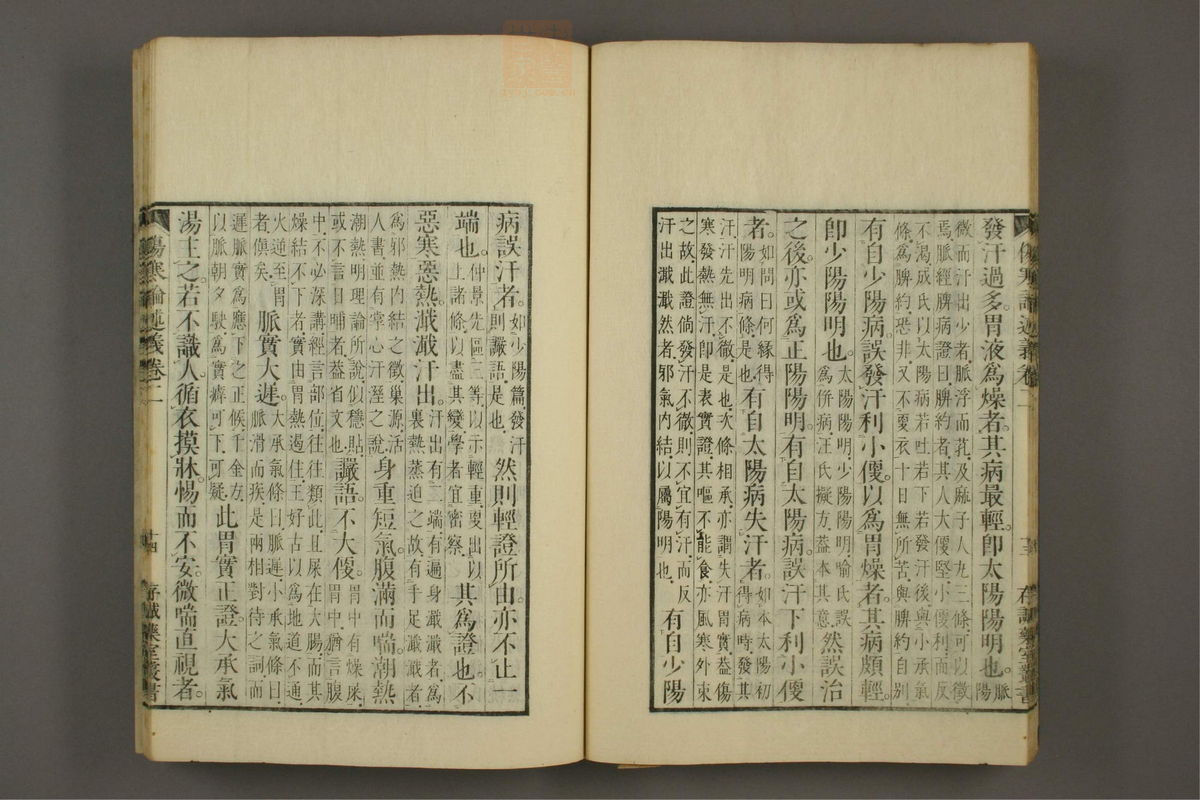 發汗過多。胃液爲燥者。其病最輕。卽太陽陽明也。脈陽
微而汗出少者。脈浮而芤。及麻子人丸三條。可以徵
焉。脈經脾病證曰。脾約者。其人大便堅。小便利。而反
不渴。成氏以太陽病若吐若下若發汗後與小承氣
條爲脾約。恐非。又不更衣十日無所苦。與脾約自別
有自少陽病。誤發汗利小便。以爲胃燥者。其病頗輕。
卽少陽陽明也。太陽陽明。少陽陽明。喻氏誤爲併病。汪氏擬方。蓋本其意。然誤治
之後。亦或爲正陽陽明。有自太陽病。誤汗下利小便
者。如問曰何緣得陽明病條是也。有自太陽病失汗者。如本太陽初得病時。發其
汗。汗先出不徹。是也。次條相承。亦謂失汗胃實。蓋傷
寒發熱無汗。卽是表實證。其嘔不能食。亦風寒外束
之故。此證倘發汗不徹。則不宜有汗。而反
汗出濈濈然者。邪氣內結。以屬陽明也。有自少陽
病誤汗者。如少陽篇發汗則讝語是也。然則輕證所由。亦不止一
端也。仲景先區三等。以示輕重。更出以上諸條。以盡其變。學者宜密察。其爲證也。不
惡寒惡熱。濈濈汗出。汗出有二端。有遍身濈濈者。爲裏熱蒸迫之故。有手足濈濈者。
爲邪熱內結之徵。巢源。活
人書。並有掌心汗溼之說。身重短氣。腹滿而喘。潮熱
潮熱。明理論所說似穩貼。
或不言日晡者。蓋省文也。讝語。不大便。胃中有燥屎。胃中。猶言腹
中。不必深講。經言部位。往往類此。且屎在大腸。而其
燥結不下者。實由胃熱遏住。王好古以爲地道不通。
火逆至胃者。傎矣。脈實大遲。大承氣條曰脈遲。小承氣條曰脈滑而疾。是兩相對待之詞。而
遲脈實爲應下之正候。千金方。
以脈朝夕駛。爲實癖可下。可疑。此胃實正證。大承氣
湯主之。若不識人。循衣摸牀。惕而不安。微喘直視者。
傷寒論述義卷二
十四
存誠藥室叢書